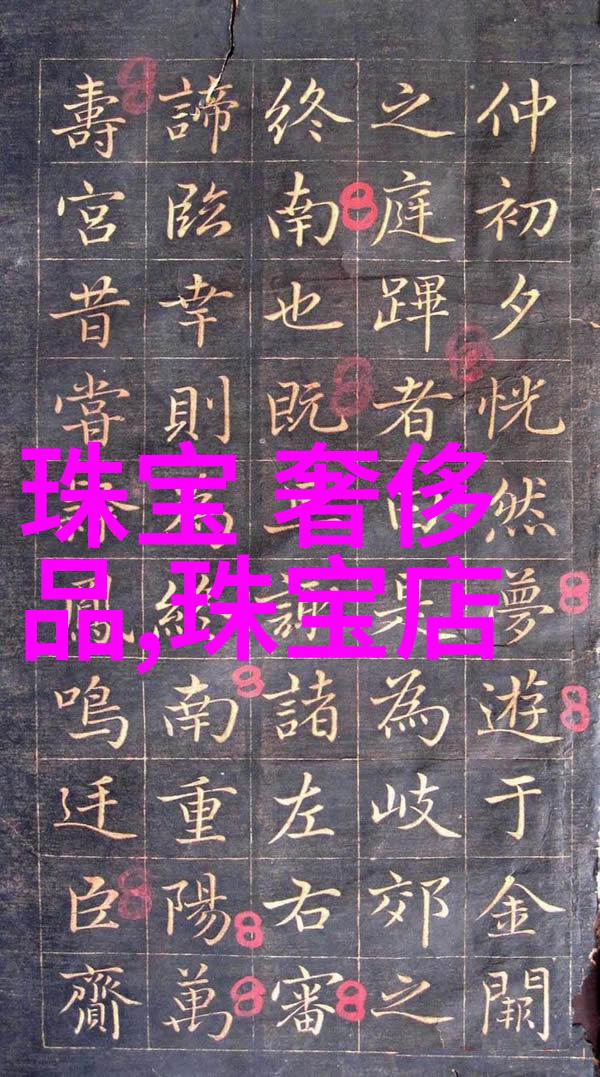 仲初夕恍然夢遊于金闕
之庭蹕者為岐郊之
終南也既諸左右審
諦臨幸則南重陽萬
壽宮昔嘗鳳鳴廷臣齎
珠宝 奢侈
品,珠宝店